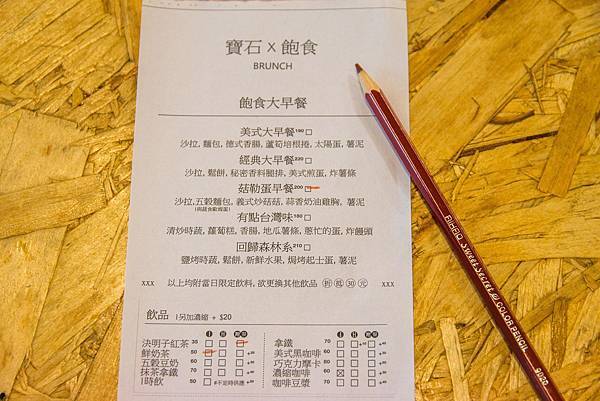 寶石 x 飽食
BRUNCH
飽食大早餐
美式大早餐190
沙拉, 麵包, 德式香腸, 蘆筍培根捲, 太陽蛋, 薯泥
經典大早餐220
沙拉, 鬆餅, 秘密香料腿排, 美式煎蛋, 炸薯條
菇勒蛋早餐200
沙拉, 五穀麵包, 義式炒菇菇, 蒜香奶油雞胸, 薯泥
有點台灣味180
清炒時蔬, 蘿蔔糕, 香腸, 地瓜薯條, 蔥忙的蛋, 炸饅頭
回歸森林系210
鹽烤時蔬, 鬆餅, 新鮮水果, 焗烤起士蛋, 薯泥
xxx 以上均附當日限定飲料, 欲更換其他飲品 折 抵 30 元 xxx
飲品 1另加濃縮 + $20
決明子紅茶 35
鮮奶茶 50
五穀豆奶 60
抹茶拿鐵 70
1時飲 50 #不定時供應
拿鐵 70
美式黑咖啡 60
巧克力摩卡 80
濃縮咖啡 60
咖啡豆漿 70
FlidBIQ Sweet Secret of COLOR PENCIL 9020